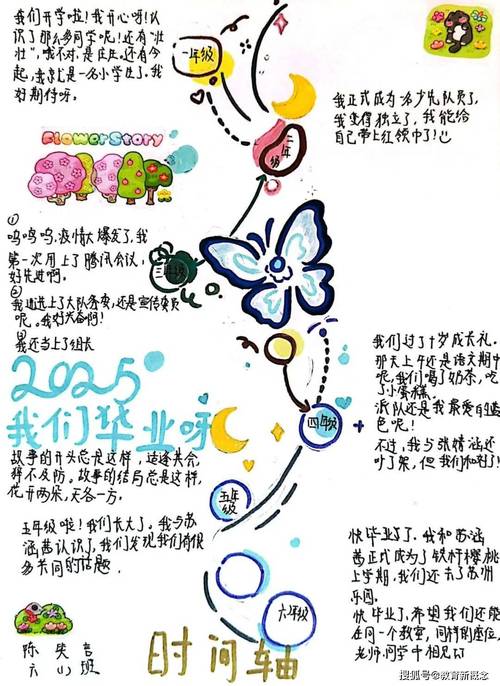 我们开学啦！我好开心呀！认
识了那么多同学呢！还有“壮
壮”，哦不对，是庄庄。还有今
起，我就是一名小学生了，我
好期待呀。
一年级
我正式成为一名少先队员了，
我变得独立了，我能给
自己带上红领巾了！
二年级
FlowerStory
①
呜呜呜，疫情大爆发了，我
第一次用上了腾讯会议，
好先进啊。
②
我选上了大队委委，还是宣传委员
呢。我好兴奋啊！
③
我还当上了组长
三年级
我们过了十岁成长礼。
那天上午还是语文期中
呢，我们喝了奶茶，吃
了小蛋糕。
派队还是我最爱白蓝
色呢！
不过，我与张情涵还
吵了架，但我们和好了！
四年级
2025
我们毕业呀
故事的开头总是这样，适逢其会，
猝不及防。故事的结局总是这样，
花开两朵，天各一方。
五年级
五年级啦！我们长大了。我与苏
涵茜认识了，我们发现我们有很
多共同的话题。
六年级
快毕业了，我和苏涵
茜正式成为了铁杆樱桃
上学期，我们还去了苏州
乐园。
快毕业了，希望我们还能
在同一个教室，同样的座位，
老师、同学中相见
时间轴
六 班
搜狐号@教育新概念